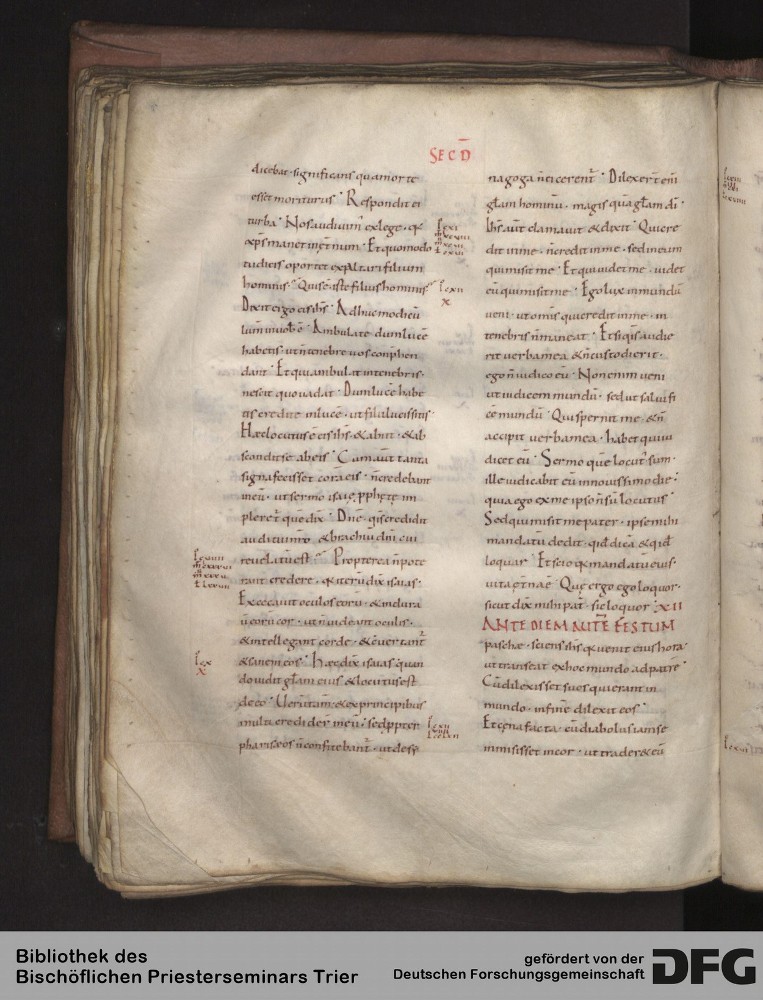 SEC D̄
dicebat · significans qua morte
esset moriturus · Respondit ei
turba · Nos audiuim' ex lege · q̄
xp̄s manet in ęt̄num · Et quomodo
tu dicis oportet exaltari filium
hominis · Quis ē iste filius hominis ·
Dixit ergo eis ih̄s · Adhuc modicū
lum̄ in uob̄ ē · Ambulate dum lucē
habetis · ut n̄ tenebre uos conp̄hen
dant · Et qui ambulat in tenebris ·
nescit quo uadat · Dum lucē habe
tis credite in lucē · ut filii lucis sitis ·
Hæc locutus ē eis ih̄s · & abiit · & ab
scondit se ab eis · Cum aūt tanta
signa fecisset corā eis · n̄ credebant
in eū · ut sermo isaię p̄phętę im
pleret̄ quē dix̄ · Dn̄e · q̄s credidit
auditui nr̄o · & brachiū dn̄i cui
reuelatū est · Propterea n̄ pote
rant credere · q̄ iterū dix̄ isaias ·
Excecauit oculos eorū · & indura
uit corū cor · ut n̄ uideant oculis ·
& intellegant corde · & c̄uertant̄
& sanem eos · Hæc dix̄ isaias quan
do uidit gl̄am eius & locutus est
de eo · Uerūtam̄ · & ex principibus
multi crediderū in eū · sed ppter
phariseos n̄ confitebant̄ · ut de sy
nagoga n̄ eicerent̄ · Dilexerūt enī
gl̄am hominū · magis quā gl̄am dī ·
Ih̄s aūt clamauit & dixit · Qui cre
dit in me · n̄ credit in me · sed in eum
qui misit me · Et qui uidet me · uidet
eū qui misit me · Ego lux in mundū
ueni · ut omīs qui credit in me · in
tenebris n̄ maneat · Et si q̄s audie
rit uerba mea & n̄ custodierit ·
ego n̄ iudico eū · Non enim ueni
ut iudicem mundū · sed ut saluifi
cē mundū · Qui spernit me · & n̄
accipit uerba mea · habet qui iu
dicet eū · Sermo quē locut' sum ·
ille iudicabit eū in nouissimo die ·
quia ego ex me ipso n̄ sū locutus ·
Sed qui misit me pater · ipse mihi
mandatū dedit · qid dicā & qid
loquar · Et scio q̄ mandatū eius ·
uita ęt̄na ē · Quę ergo ego loquor ·
sicut dix̄ mihi pat̄ · sic loquor · XII
ANTE DIEM AUTĒ FESTUM
paschæ · sciens ih̄s q̄ uenit eius hora ·
ut transeat ex hoc mundo ad patrē ·
Cū dilexisset suos qui erant in
mundo · in finē dilexit eos ·
Et cęna facta · cū diabolus iam se
immisisset in cor · ut traderet eū
Bibliothek des
Bischöflichen Priesterseminars Trier
gefördert von der
Deutschen Forschungsgemeinschaft
DFG